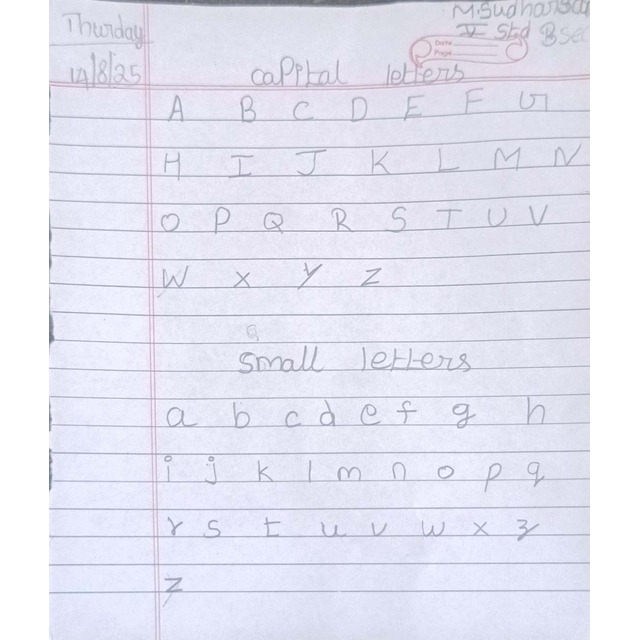 Thurday
M.Sudharsan
V Std B sec
14/8/25
Date
Page
capital letters
A B C D E F G
H I J K L M N
O P Q R S T U V
W X Y Z
small letters
a b c d e f g h
i j k l m n o p q
r s t u v w x y
z